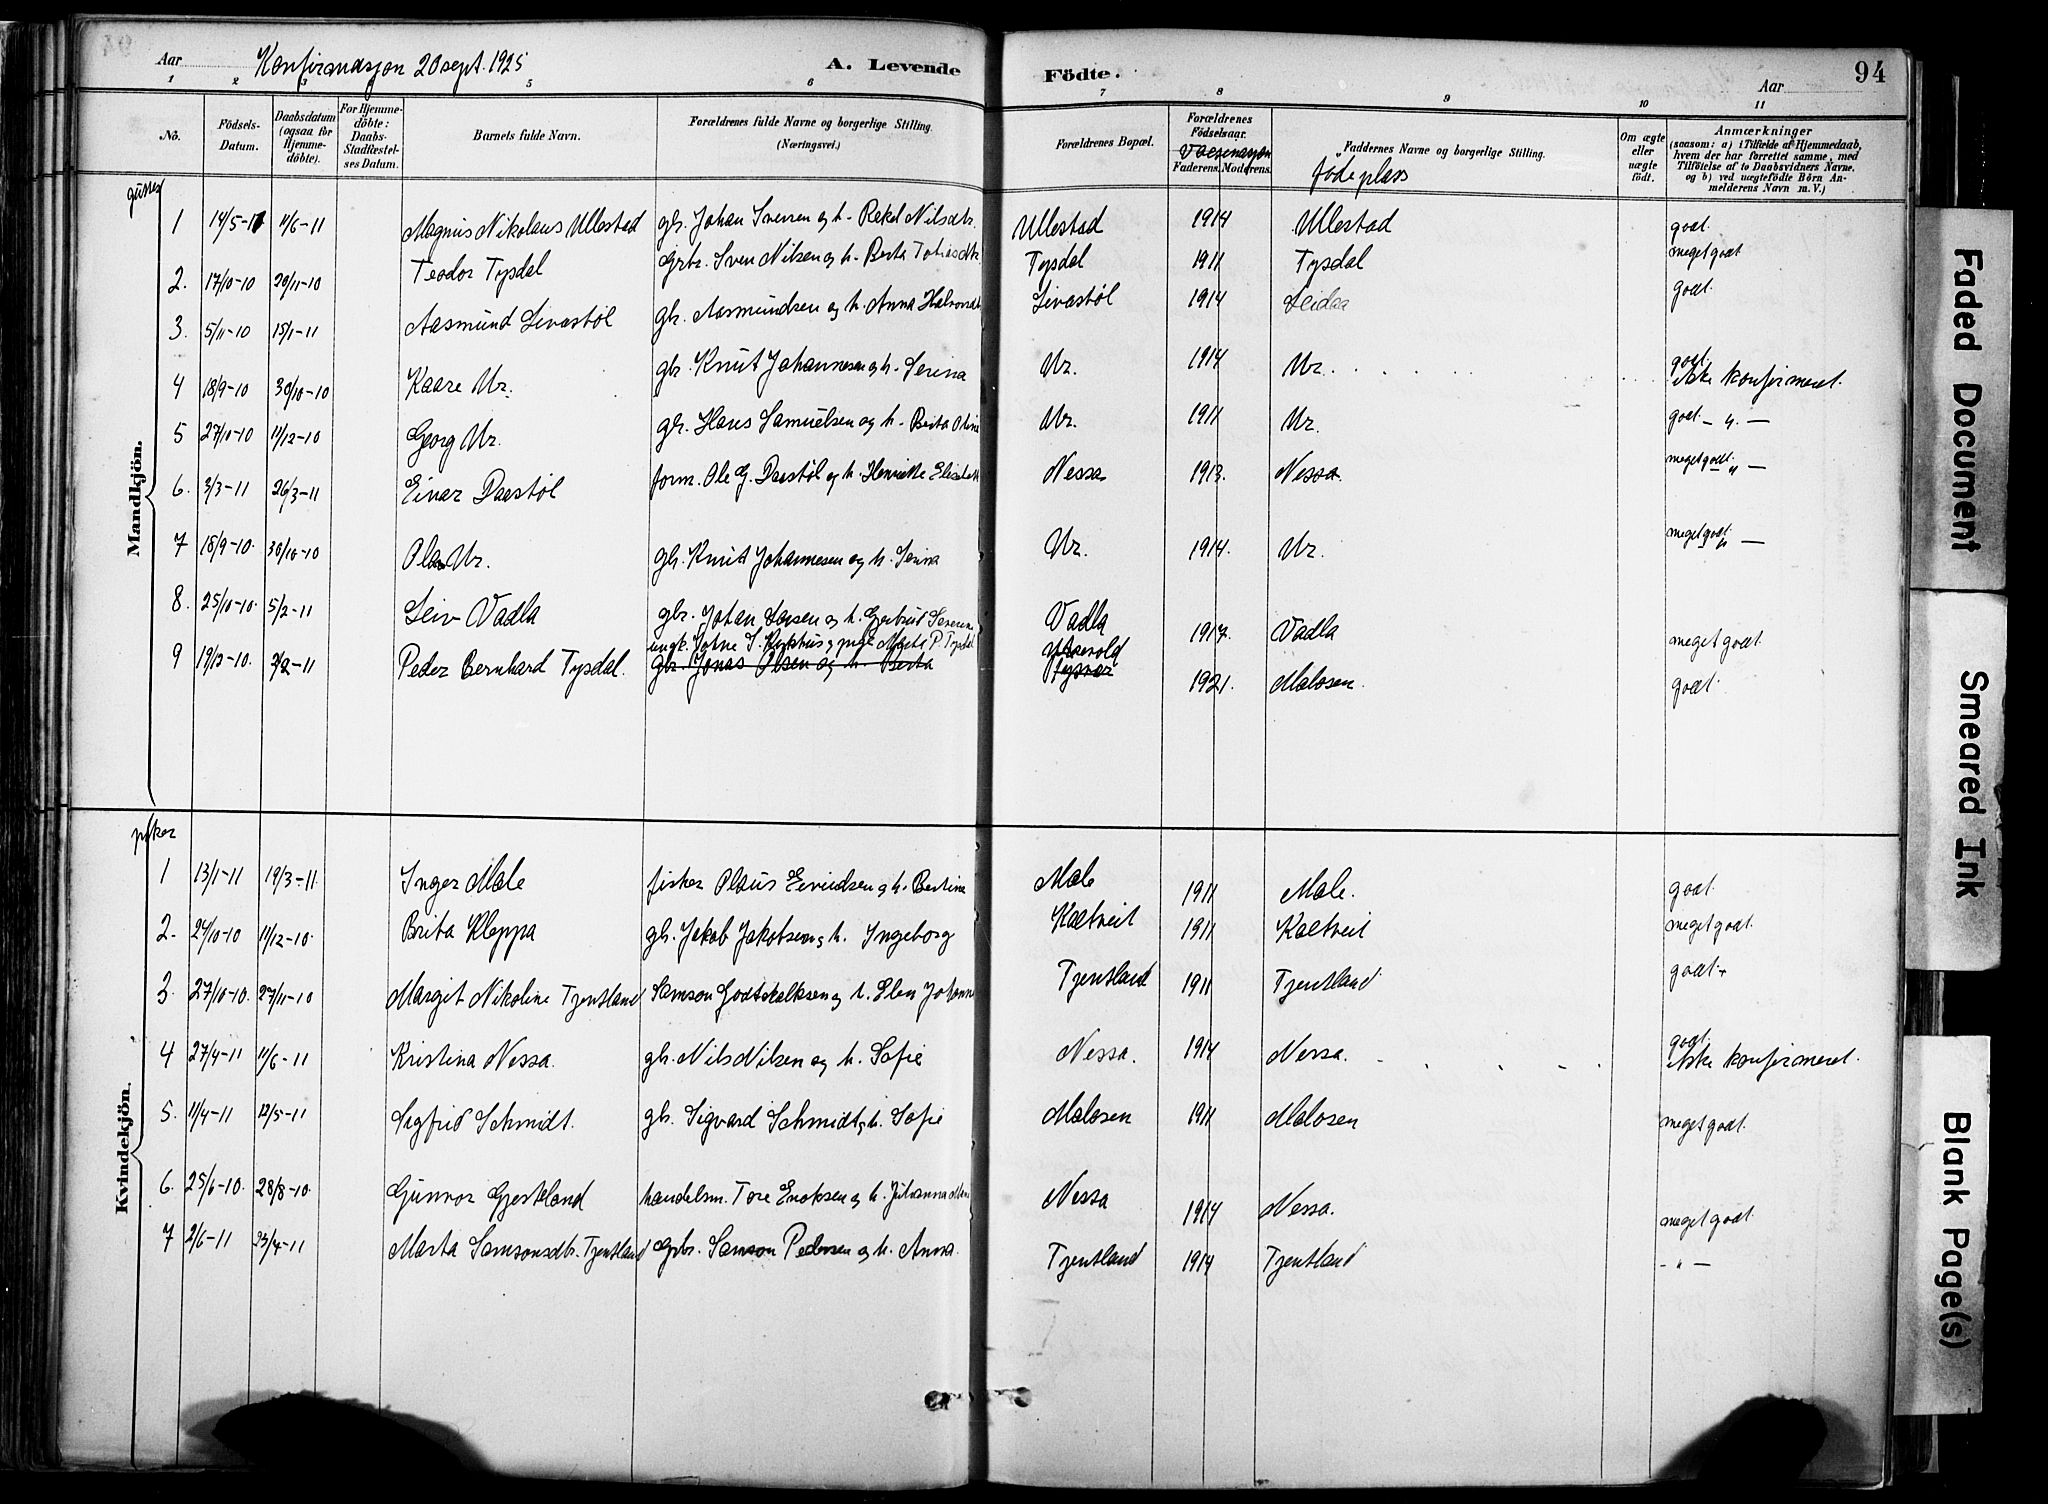 Aar Konfirmasjon 20 sept. 1925 A. Levende Födte. Aar 94
1 2 3 5 6 7 8 9 10 11
No.
Födsels-Datum.
Daabsdatum (ogsaa for Hjemme-döbte).
For Hjemme-döbte: Daabs-Stadfæstel-ses Datum.
Barnets fulde Navn.
Forældrenes fulde Navne og borgerlige Stilling. (Næringsvei.)
Forældrenes Bopæl.
Forældrenes Födselsaar. Vaccinasjon Faderens. Moderens.
Faddernes Navne og borgerlige Stilling. födeplass
Om ægte eller uægte födt.
Anmærkninger (saasom: a) i Tilfælde af Hjemmedaab, hvem der har forrettet samme, med Tilföielse af to Daabsvidners Navne. og b) ved uægtefödte Börn An-melderens Navn m. V.)
gutter
Mandkjön.
1 14/5-11 11/6-11 Magnus Nikolaus Ullestad gbr. Johan Iversen og h. Rakel Nilsdtr. Ullestad 1914 Ullestad godt.
2. 17/10-10 20/11-10 Teodor Tysdal Grbr. Sven Nilsen og h. Berta Tobiasdtr Tysdal 1911 Tysdal meget godt
3. 5/11-10 15/1-11 Aasmund Livastöl gbr. Aasmundsen og h. Anna Halvorsdt Livastöl 1914 godt.
4 18/9-10 30/10-10 Kaare Ur. gbr. Knut Johannesen og h. Serina Ur. 1914 Ur. godt. ikke konfirmeret.
5 27/10-10 11/12-10 Georg Ur. gbr. Hans Samuelsen og h. Berta Ur. 1911 Ur. godt - " -
6. 3/3-11 26/3-11 Einar Daestöl form. Ole G. Daestöl og h. Henriette Nessa 1913. Nessa. meget godt. " -
7 18/9-10. 30/10-10 Ola Ur. gbr. Knut Johannesen og h. Serina Ur. 1914. Ur. meget godt. " -
8. 25/10-10. 5/2-11 Leiv Vadla gbr. Johan Larsen og h. Vadla 1917. Vadla meget godt.
9 19/12-10. 2/2-11 Peder Bernhard Tysdal. Tysdal
gbr. Jonas Olsen og h. Berta Tysvær 1921. Malosen. godt.
piker
Kvindekjön.
1 13/1-11 19/3-11. Inger Male fisker Olaus Eivindsen og h. Bertine Male 1911 Male. godt.
2. 24/10-10 11/12-10. Brita Kleppa gbr. Jakob Jakobsen og h. Ingeborg Kaltveit 1911 Kaltveit meget godt.
3. 27/10-10. 27/11-10 Margit Nikoline Tjentland Samson Godtskalksen og h. Elen Johanne Tjentland 1911 Tjentland godt +
4 27/4-11 11/6-11 Kristina Nessa. gbr. Nils Nilsen og h. Sofie Nessa. 1914 Nessa. godt. ikke konfirmeret.
5. 11/4-11 12/5-11 Sigfrid Schmidt. gbr. Sigvard Schmidt og h. Sofie Malosen 1911 Malosen meget godt.
6. 25/6-10. 28/8-10. Gunvor Gjestland handelsm. Tore Enoksen og h. Nessa 1914 Nessa. meget godt.
7 2/6-11 23/4-11 Marta Samsonsdtr. Tjentland Grbr. Samson Pedersen og h. Anna. Tjentland 1914 Tjentland - " -
Faded Document
Smeared Ink
Blank Page(s)